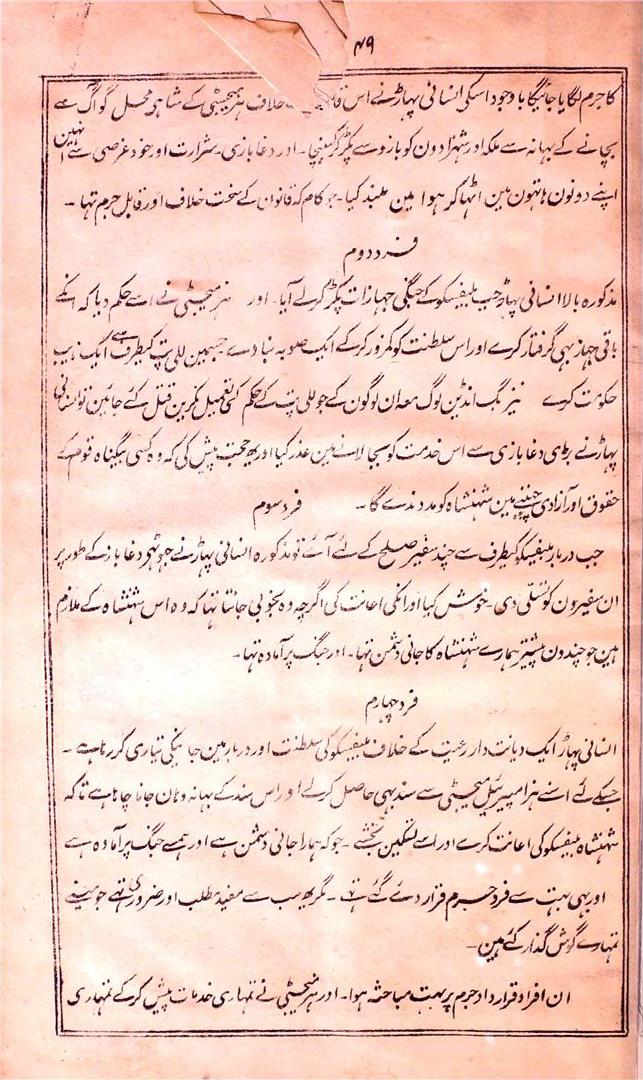 ۴۹
کا جرم لگایا جائیگا باوجود اسکی انسانی پہاڑ نے اس خلاف ہز مجیسٹی کے شاہی محل کو آگ سے
بچانے کے بہانہ سے ملکہ اور شہزادون کو بازو سے پکڑ کر کہینچا۔ اور دغا بازی۔ شرارت اور خود غرضی سے انہین
اپنے دونون ہاتہون مین اٹہا کر ہوا مین بلند کیا۔ جو کام کہ قانون کے سخت خلاف اور قابل جرم تہا۔
فرد دوم
مذکورہ بالا انسانی پہاڑ جب بلیفسکو کے جنگی جہازات پکڑ کر لے آیا۔ اور ہز مجیسٹی نے اسے حکم دیا کہ انکے
باقی جہاز بہی گرفتار کرے اور اس سلطنت کو کمزور کر کے ایک صوبہ بنا دے جسمین للی پٹ کیطرف سے ایک نایب
حکومت کرے نیز بگ انڈین لوگ معہ ان لوگون کے جو للی پٹ کے حکم کی تعمیل نکرین قتل کئے جائین تو انسانی
پہاڑ نے بڑی دغا بازی سے اس خدمت کو بجا لانے مین عذر کیا اور یہ حجت پیش کی کہ وہ کسی بیگناہ قوم کے
حقوق اور آزادی چہیننے مین شہنشاہ کو مدد ندے گا۔ فرد سوم
جب دربار بلیفسکو کیطرف سے چند سفیر صلح کے لئے آئے تو مذکورہ انسانی پہاڑ نے جہوٹہے دغا باز کے طور پر
ان سفیرون کو تسلی دی۔ خوش کیا اور انکی اعانت کی اگرچہ وہ بخوبی جانتا تہا کہ وہ اس شہنشاہ کے ملازم
ہین جو چند دن پیشتر ہمارے شہنشاہ کا جانی دشمن تہا۔ اور جنگ پر آمادہ تہا۔
فرد چہارم
انسانی پہاڑ ایک دیانت دار رعیت کے خلاف بلیفسکو کی سلطنت اور دربار مین جانیکی تیاری کر رہا ہے۔
جسکے لئے اسنے ہز امپیریل مجیسٹی سے سند بہی حاصل کر لے اور اس سند کے بہانہ وہان جانا چاہتا ہے تاکہ
شہنشاہ بلیفسکو کی اعانت کرے اور اسے تسکین بخشے۔ جو کہ ہمارا جانی دشمن ہے اور ہمسے جنگ پر آمادہ ہے
اور بہی بہت سے فرد جرم قرار دئے گئے تہے۔ مگر یہ سب سے مفید مطلب اور ضروری تہے جو مینے
تمہارے گوش گذار کئے ہین۔
ان افراد قرار داد جرم پر بہت مباحثہ ہوا۔ اور ہز مجیسٹی نے تمہاری خدمات پیش کر کے تمہاری